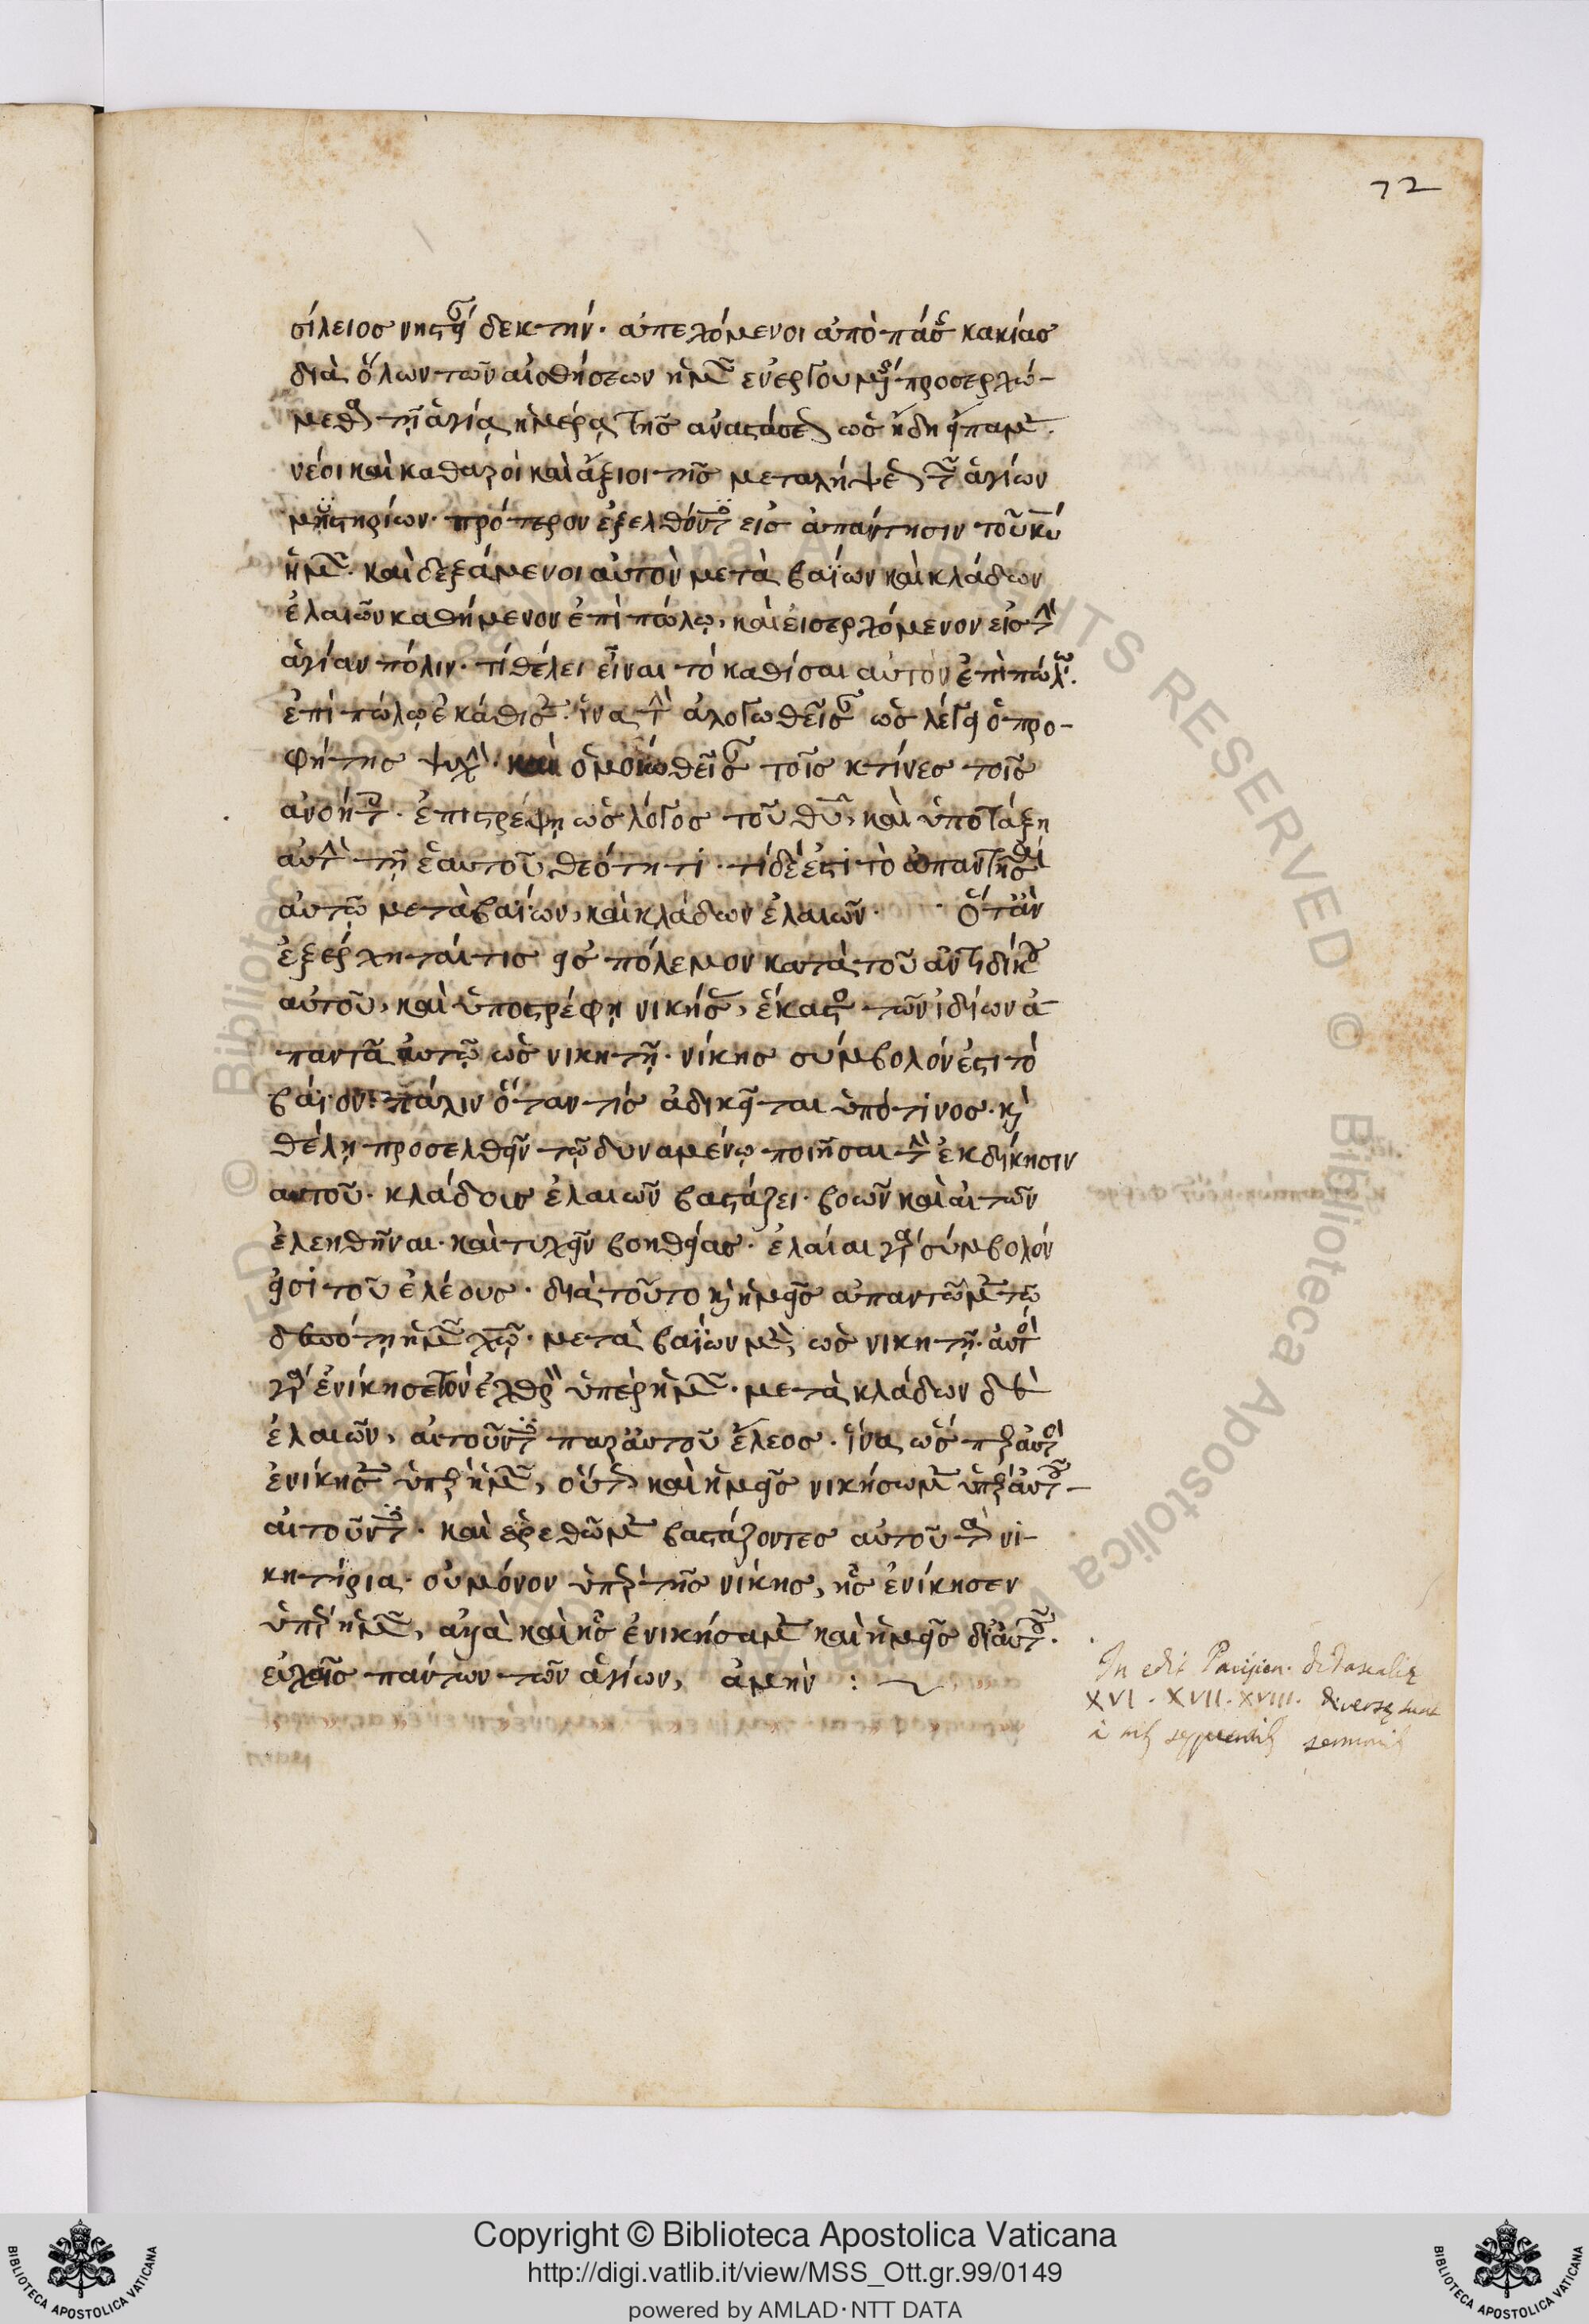 72
σίλειος νηστείαν δεκτήν· ἀπεχόμενοι ἀπὸ πάσης κακίας
διὰ ὅλων τῶν αἰσθήσεων ἡμῶν ἐνεργουμένης· προσερχώ-
μεθα τῇ ἁγίᾳ ἡμέρᾳ τῆς ἀναστάσεως ὡς ἤδη εἴπαμεν·
νέοι καὶ καθαροὶ καὶ ἄξιοι τῆς μεταλήψεως τῶν ἁγίων
μυστηρίων· πρότερον ἐξελθόντες εἰς ἀπάντησιν τοῦ κυ
ἡμῶν· καὶ δεξάμενοι αὐτὸν μετὰ βαΐων καὶ κλάδων
ἐλαιῶν καθήμενον ἐπὶ πώλῳ, καὶ εἰσερχόμενον εἰς τὴν
ἁγίαν πόλιν· τί θέλει εἶναι τὸ καθίσαι αὐτὸν ἐπὶ πώλῳ·
ἐπὶ πώλῳ ἐκάθισεν· ἵνα τὴν ἀλογωθεῖσαν ὡς λέγει ὁ προ-
φήτης ψυχὴν· καὶ ὁμοιωθεῖσαν τοῖς κτίνεσ τοῖς
ἀνοήτοις· ἐπιστρέψῃ ὡς λόγος τοῦ θυ, καὶ ὑποτάξῃ
αὐτὴν τῇ ἑαυτοῦ θεότητι· τί δέ ἐστι τὸ ἀπαντῆσαι
αὐτῷ μετὰ βαΐων, καὶ κλάδων ἐλαιῶν· Ὅταν
ἐξέρχηταί τις εἰς πόλεμον κατὰ τοῦ ἀντιδίκου
αὐτοῦ, καὶ ὑποστρέφῃ νικήσας, ἕκαστος τῶν ἰδίων ἀ-
παντᾶ αὐτῷ ὡς νικητῇ· νίκης σύμβολόν ἐστι τὸ
βάϊον· πάλιν ὅταν τίς ἀδικεῖται ὑπό τινος· καὶ
θέλῃ προσελθεῖν τῷ δυναμένῳ ποιῆσαι τὴν ἐκδίκησιν
αὐτοῦ· κλάδοις ἐλαιῶν βαστάζει· βοῶν καὶ αἰτῶν
ἐλεηθῆναι· καὶ τυχεῖν βοηθείας· ἐλαίαι γὰρ σύμβολόν
εἰσὶ τοῦ ἐλέους· διὰ τοῦτο καὶ ἡμεῖς ἀπαντῶμεν τῷ
δεσπότῃ ἡμῶν χῷ· μετὰ βαΐων μὲν, ὡς νικητῇ· αὐτὸς
γὰρ ἐνίκησε τὸν ἐχθρὸν ὑπὲρ ἡμῶν· μετὰ κλάδων δὲ
ἐλαιῶν, αἰτοῦντες παρ' αὐτοῦ ἔλεος· ἵνα ὥσπερ αὐτὸς
ἐνίκησεν ὑπὲρ ἡμῶν, οὕτως καὶ ἡμεῖς νικήσωμεν ὑπὲρ αὐτοῦ
αἰτοῦντες· καὶ εὑρεθῶμεν βαστάζοντες αὐτοῦ τὰ νι-
κητήρια· οὐ μόνον ὑπὲρ τῆς νίκης, ἧς ἐνίκησεν
ὑπὲρ ἡμῶν, ἀλλὰ καὶ ἧς ἐνικήσαμεν καὶ ἡμεῖς δι' αὐτοῦ·
εὐχαῖς πάντων τῶν ἁγίων, ἀμήν :
In edit Parisien. didascaliæ
XVI. XVII. XVIII. diversę sunt
à
Copyright © Biblioteca Apostolica Vaticana
http://digi.vatlib.it/view/MSS_Ott.gr.99/0149
powered by AMLAD·NTT DATA
BIBLIOTECA APOSTOLICA VATICANA
BIBLIOTECA APOSTOLICA VATICANA